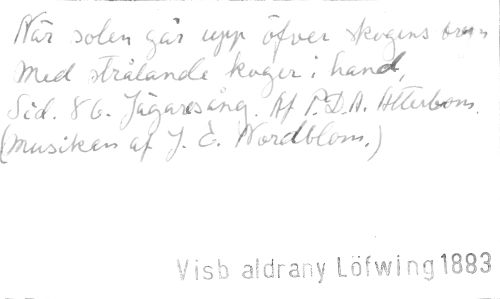 När solen går upp öfver skogens bryn
Med strålande koger i hand,
Sid. 86. Jägaresång. Af P.D.A. Atterbom.
(Musiken af J. E. Nordblom.)
Visb aldrany Löfwing 1883